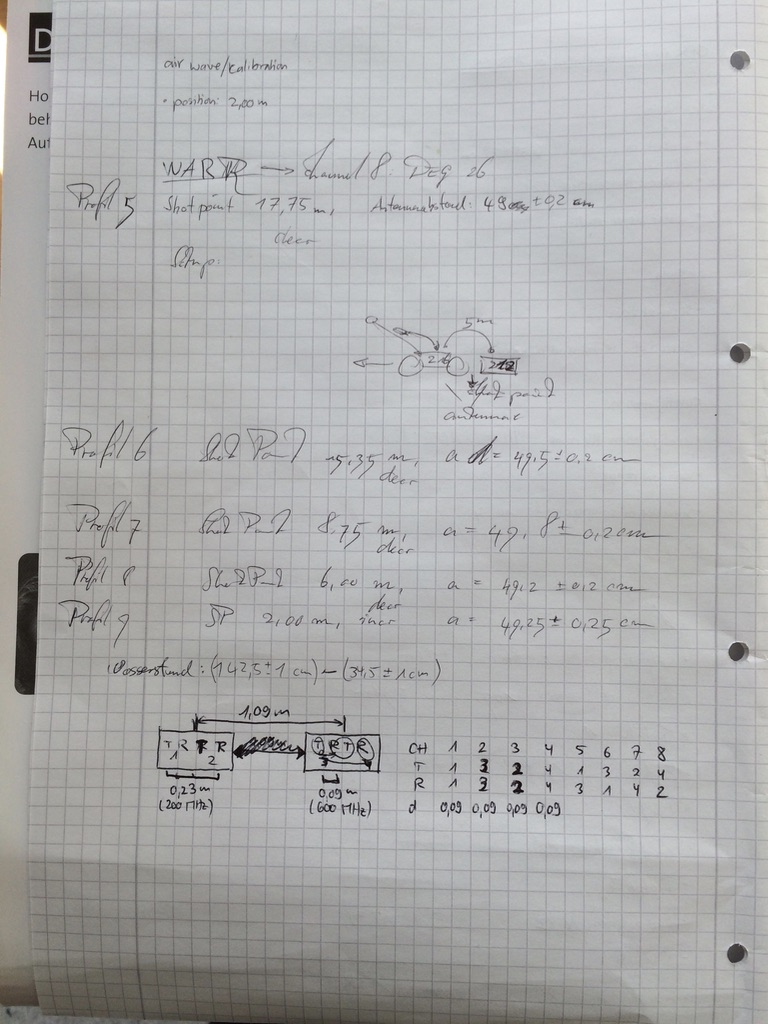 D
Ho
beh
Auf
air wave/calibration
• position: 2,00 m
WARR → Channel 8: DEG 26
Profil 5 Shot point 17,75 m, Antennenabstand: 49 ± 0,2 cm
decr
Setup:
5m
shot point
antennae
Profil 6 Shot Point 15,35 m, a = 49,5 ± 0,2 cm
decr
Profil 7 Shot Point 8,75 m, a = 49,8 ± 0,2 cm
decr
Profil 8 Shot Point 6,00 m, a = 49,2 ± 0,2 cm
decr
Profil 9 SP 2,00 m, incr a = 49,25 ± 0,25 cm
Wasserstand: (142,5 ± 1 cm) – (34,5 ± 1 cm)
1,09 m
T R T R T R T R CH 1 2 3 4 5 6 7 8
1 2 3 T 1 3 2 4 1 3 2 4
R 1 3 2 4 3 1 4 2
0,23 m 0,09 m
(200 MHz) (600 MHz) d 0,09 0,09 0,09 0,09